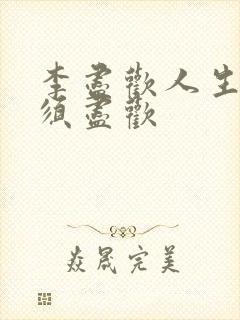 李盡歡人生
須盡歡
焱晟完美